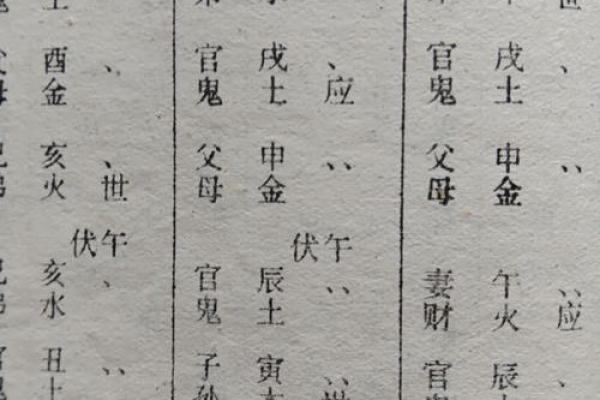 酉金 、
亥火 、世
伏午
亥水 、
丑土 、、
官鬼 戌土 、应
父母 申金 、、
伏午
官鬼 辰土 、、
子孙 寅木 、、世
官鬼 戌土 、
父母 申金 、、
妻财 午火 、、应
官鬼 辰